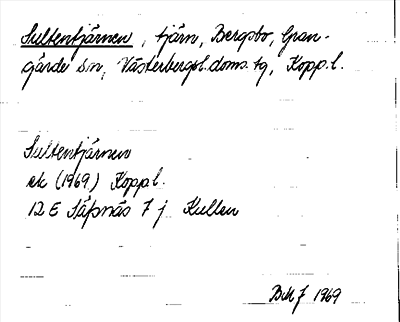 Sultentjärnen, tjärn, Bergsbo, Gran-
gärde sn, Västerbergsl. doms. tg, Kopp. l.
Sultentjärnen
ek (1969) Kopp l.
12 E Säfsnäs 7 j Kullen
1969